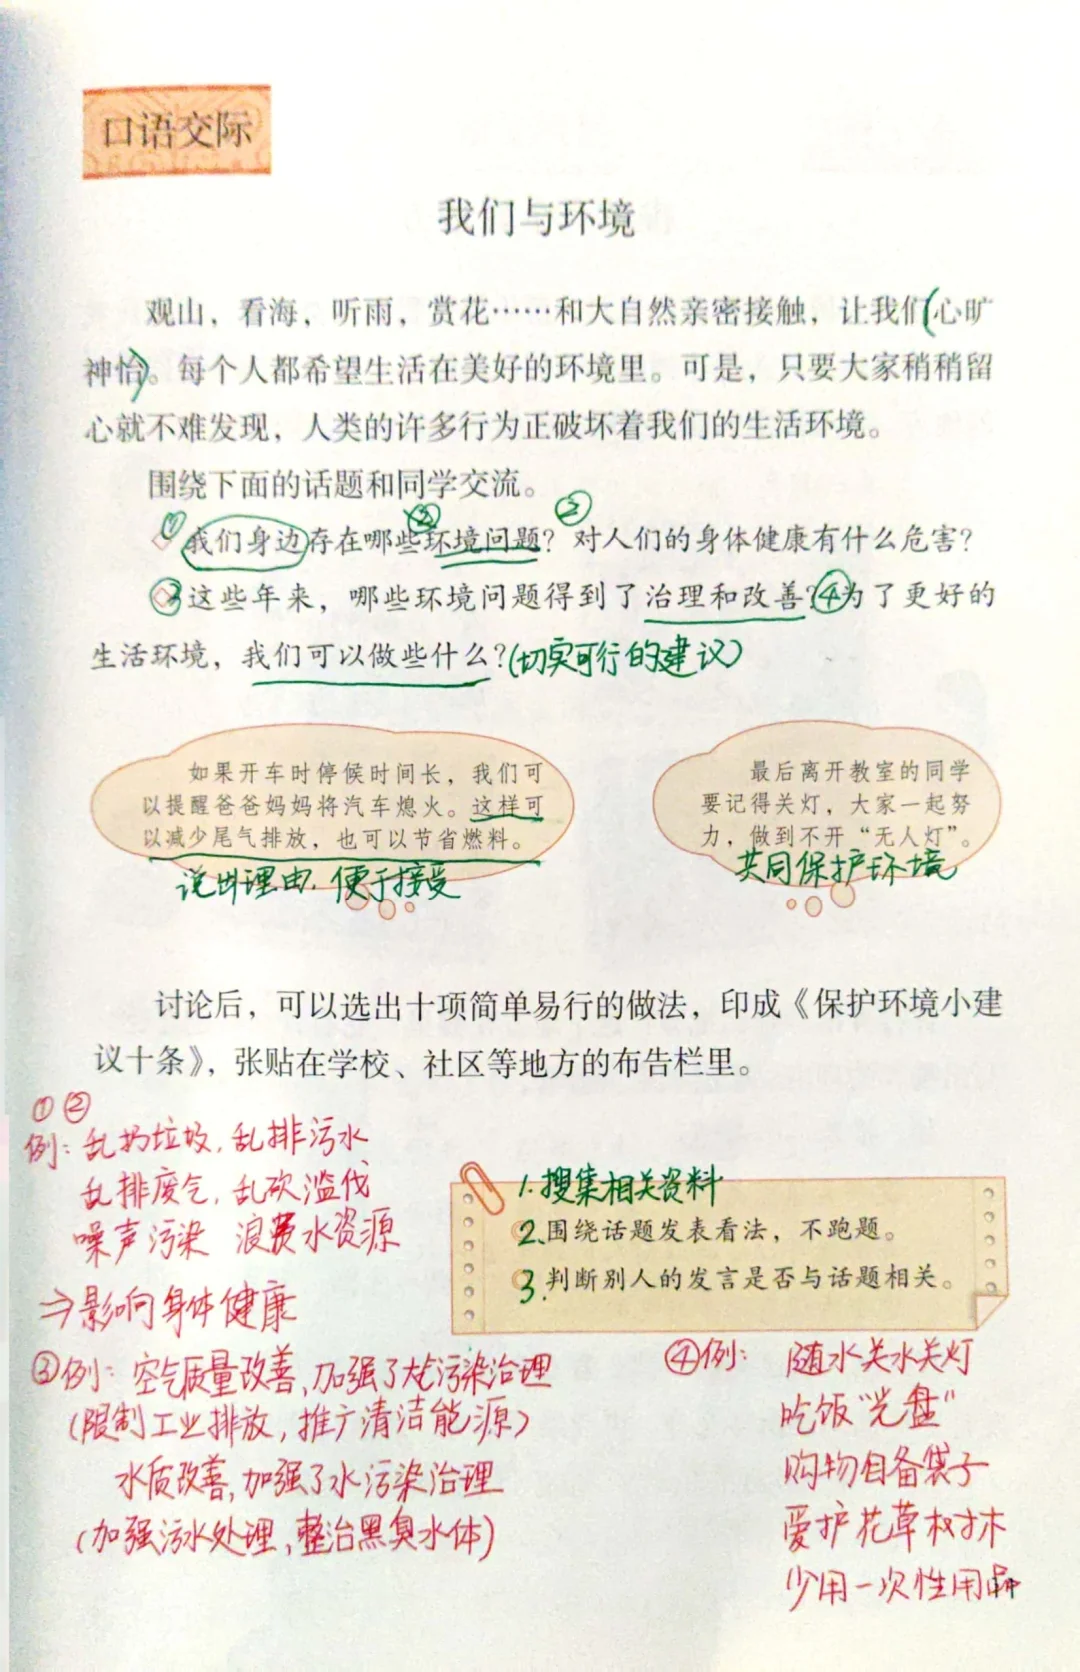 口语交际
我们与环境
观山，看海，听雨，赏花……和大自然亲密接触，让我们(心旷
神怡)。每个人都希望生活在美好的环境里。可是，只要大家稍稍留
心就不难发现，人类的许多行为正破坏着我们的生活环境。
围绕下面的话题和同学交流。
①我们身边存在哪些②环境问题？②对人们的身体健康有什么危害？
③这些年来，哪些环境问题得到了治理和改善？④为了更好的
生活环境，我们可以做些什么？(切实可行的建议)
如果开车时停候时间长，我们可
以提醒爸爸妈妈将汽车熄火。这样可
以减少尾气排放，也可以节省燃料。
说出理由，便于接受
最后离开教室的同学
要记得关灯，大家一起努
力，做到不开“无人灯”。
共同保护环境
讨论后，可以选出十项简单易行的做法，印成《保护环境小建
议十条》，张贴在学校、社区等地方的布告栏里。
①②
例：乱扔垃圾，乱排污水
乱排废气，乱砍滥伐
噪声污染 浪费水资源
⇒影响身体健康
③例：空气质量改善，加强了大气污染治理
(限制工业排放，推广清洁能源)
水质改善，加强了水污染治理
(加强污水处理，整治黑臭水体)
1.搜集相关资料
2.围绕话题发表看法，不跑题。
3.判断别人的发言是否与话题相关。
④例：随水关水关灯
吃饭“光盘”
购物自备袋子
爱护花草树木
少用一次性用品